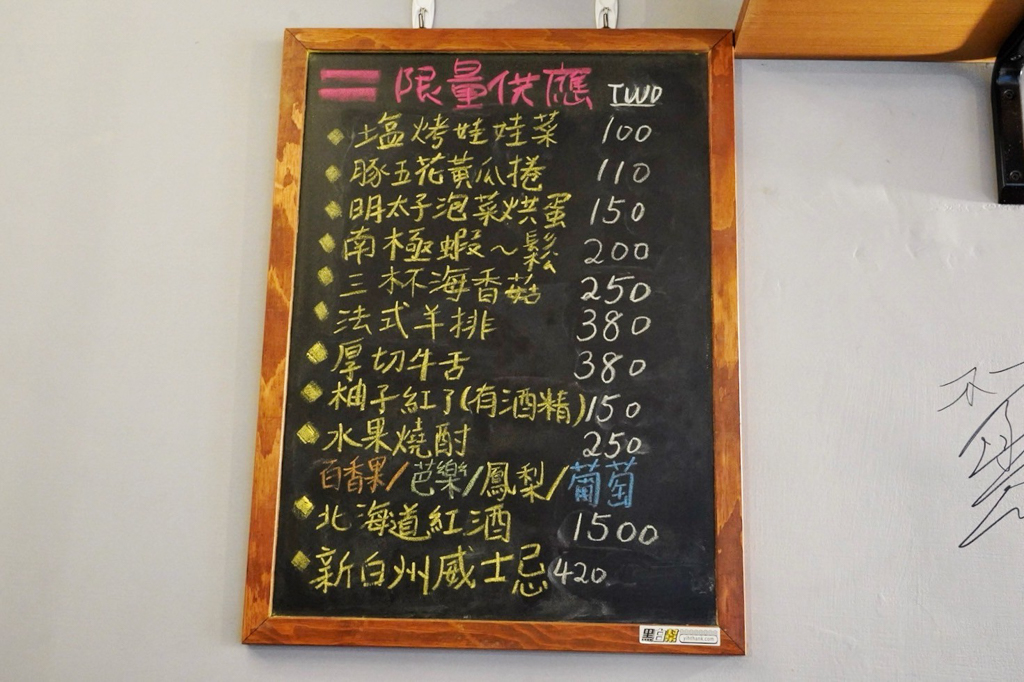 限量供應 TWD
塩烤娃娃菜 100
豚五花黃瓜捲 110
明太子泡菜烘蛋 150
南極蝦~鬆 200
三杯海香菇 250
法式羊排 380
厚切牛舌 380
柚子紅了(有酒精) 150
水果燒酎 250
百香果/芭樂/鳳梨/葡萄
北海道紅酒 1500
新白州威士忌 420